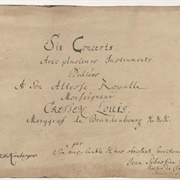 Six Concerts
Avec plusieurs Instruments
Dediées
A Son Altesse Royalle
Monseigneur
CRETIEN LOUIS.
Marggraf de Brandenbourg &c.&c.&c.
par
Son tres-humble & tres obeissant serviteur
Jean Sebastien